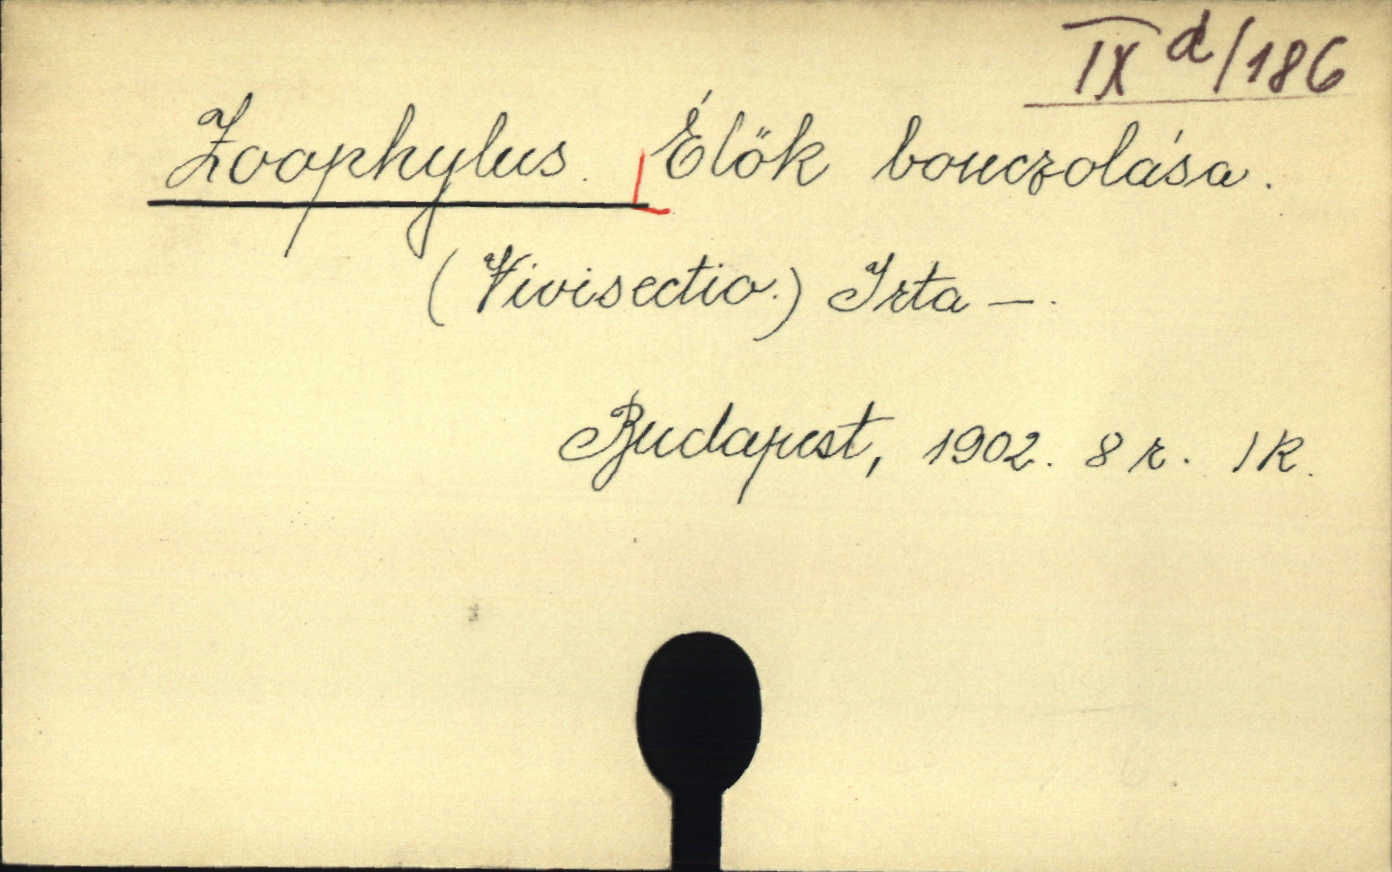 IX d/186
Zoophylus. Élők bonczolása.
(Vivisectio.) Irta —.
Budapest, 1902. 8 r. 1 K.